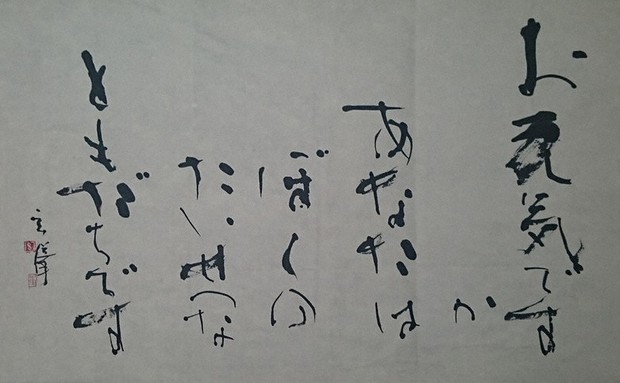 お元気ですか
あなたは
ぼくの
たいせつな
ともだちです